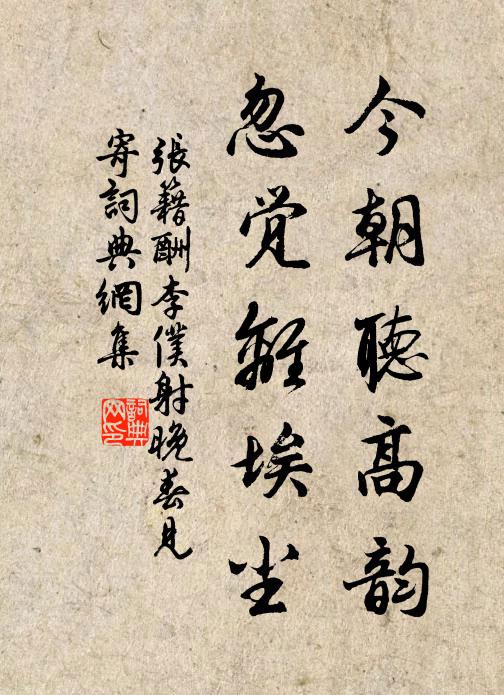 今朝聽高韵
忽觉離埃尘
張籍酬李僕射晚春見
寄詞典網集
詞典
网印